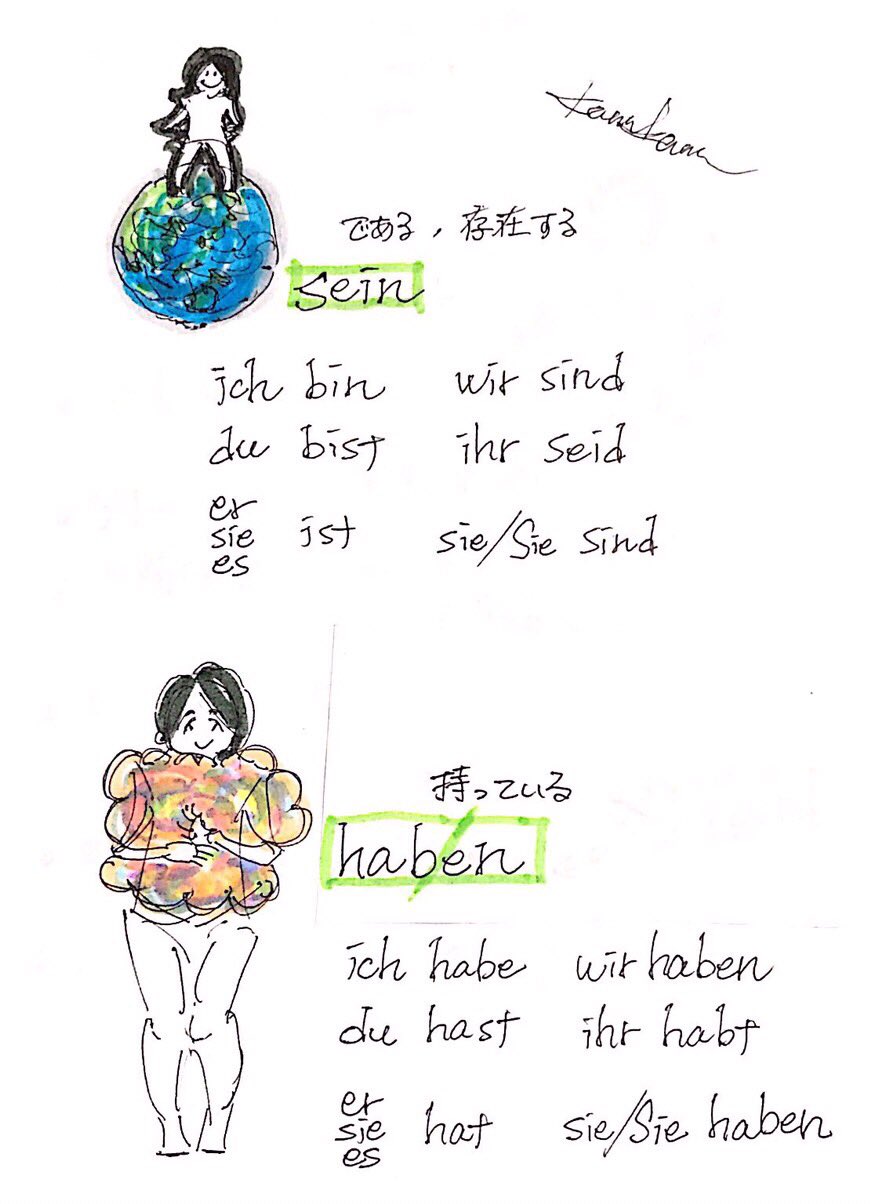 である，存在する
sein
ich bin wir sind
du bist ihr seid
er
sie ist sie/Sie sind
es
持っている
haben
ich habe wir haben
du hast ihr habt
er
sie hat sie/Sie haben
es